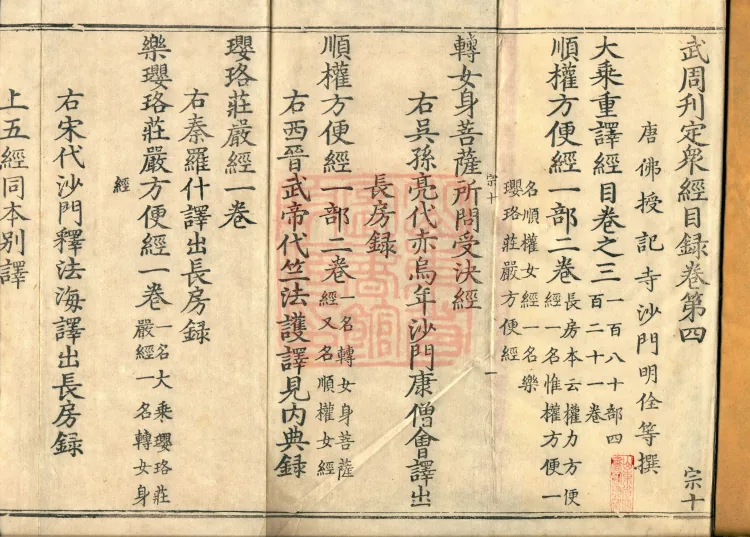 武周刊定衆經目録卷第四
宗十
唐佛授記寺沙門明佺等撰
大乘重譯經目卷之三一百八十部四百二十一卷
順權方便經一部二卷長房本云權力方便經一名惟權方便一
名順權女經一名樂
瓔珞莊嚴方便經
宗十
一
轉女身菩薩所問受決經
右吳孫亮代赤烏年沙門康僧會譯出
長房録
順權方便經一部二卷一名轉女身菩薩經又名順權女經
右西晉武帝代竺法護譯見内典録
瓔珞莊嚴經一卷
右秦羅什譯出長房録
樂瓔珞莊嚴方便經一卷一名大乘瓔珞莊嚴經一名轉女身
經
右宋代沙門釋法海譯出長房録
上五經同本別譯